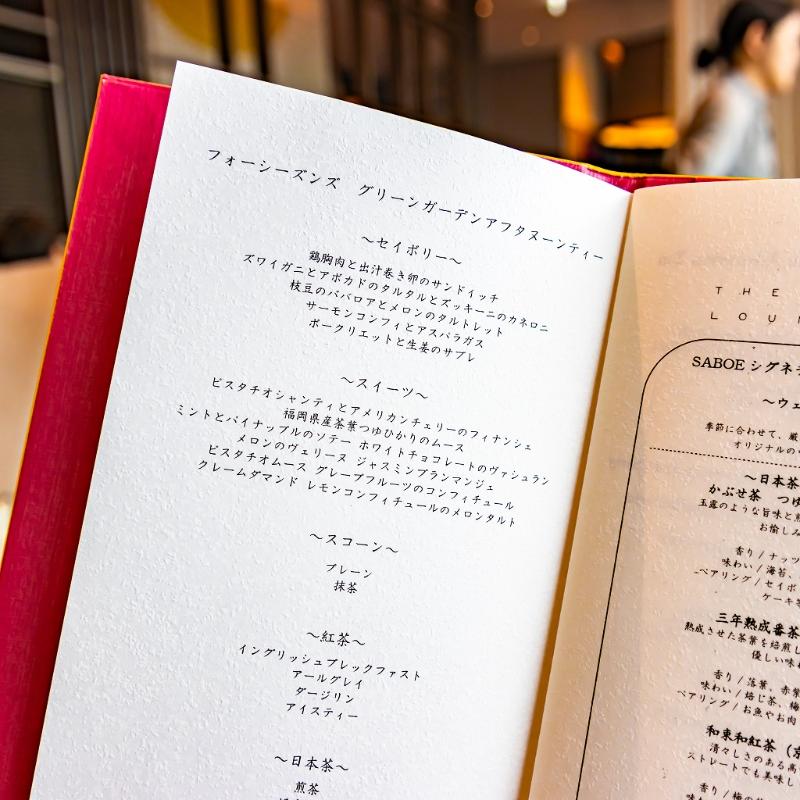 フォーシーズンズ グリーンガーデンアフタヌーンティー
〜セイボリー〜
鶏胸肉と出汁巻き卵のサンドイッチ
ズワイガニとアボカドのタルタルとズッキーニのカネロニ
枝豆のババロアとメロンのタルトレット
サーモンコンフィとアスパラガス
ポークリエットと生姜のサブレ
〜スイーツ〜
ピスタチオシャンティとアメリカンチェリーのフィナンシェ
福岡県産茶葉つゆひかりのムース
ミントとパイナップルのソテー ホワイトチョコレートのヴァシュラン
メロンのヴェリーヌ ジャスミンブランマンジェ
ピスタチオムース グレープフルーツのコンフィチュール
クレームダマンド レモンコンフィチュールのメロンタルト
〜スコーン〜
プレーン
抹茶
〜紅茶〜
イングリッシュブレックファスト
アールグレイ
ダージリン
アイスティー
〜日本茶〜
煎茶
THE
LOU
SABOE シグネ
〜ウェ
季節に合わせて、厳
オリジナルの
〜日本茶
かぶせ茶 つゆ
玉露のような旨味と
お愉しみ
香り / ナッツ
味わい / 海苔、
ペアリング / セイボ
ケーキ
三年熟成番茶
熟成させた茶葉を焙煎し
優しい味
香り / 落葉、赤紫
味わい / 焙じ茶、梅
ペアリング / お魚やお肉
和束和紅茶（京
清々しさのある高
ストレートでも美味し
香り / 梅の